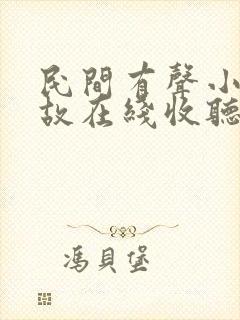 民間有聲小
故在綫收聽
馮貝堡